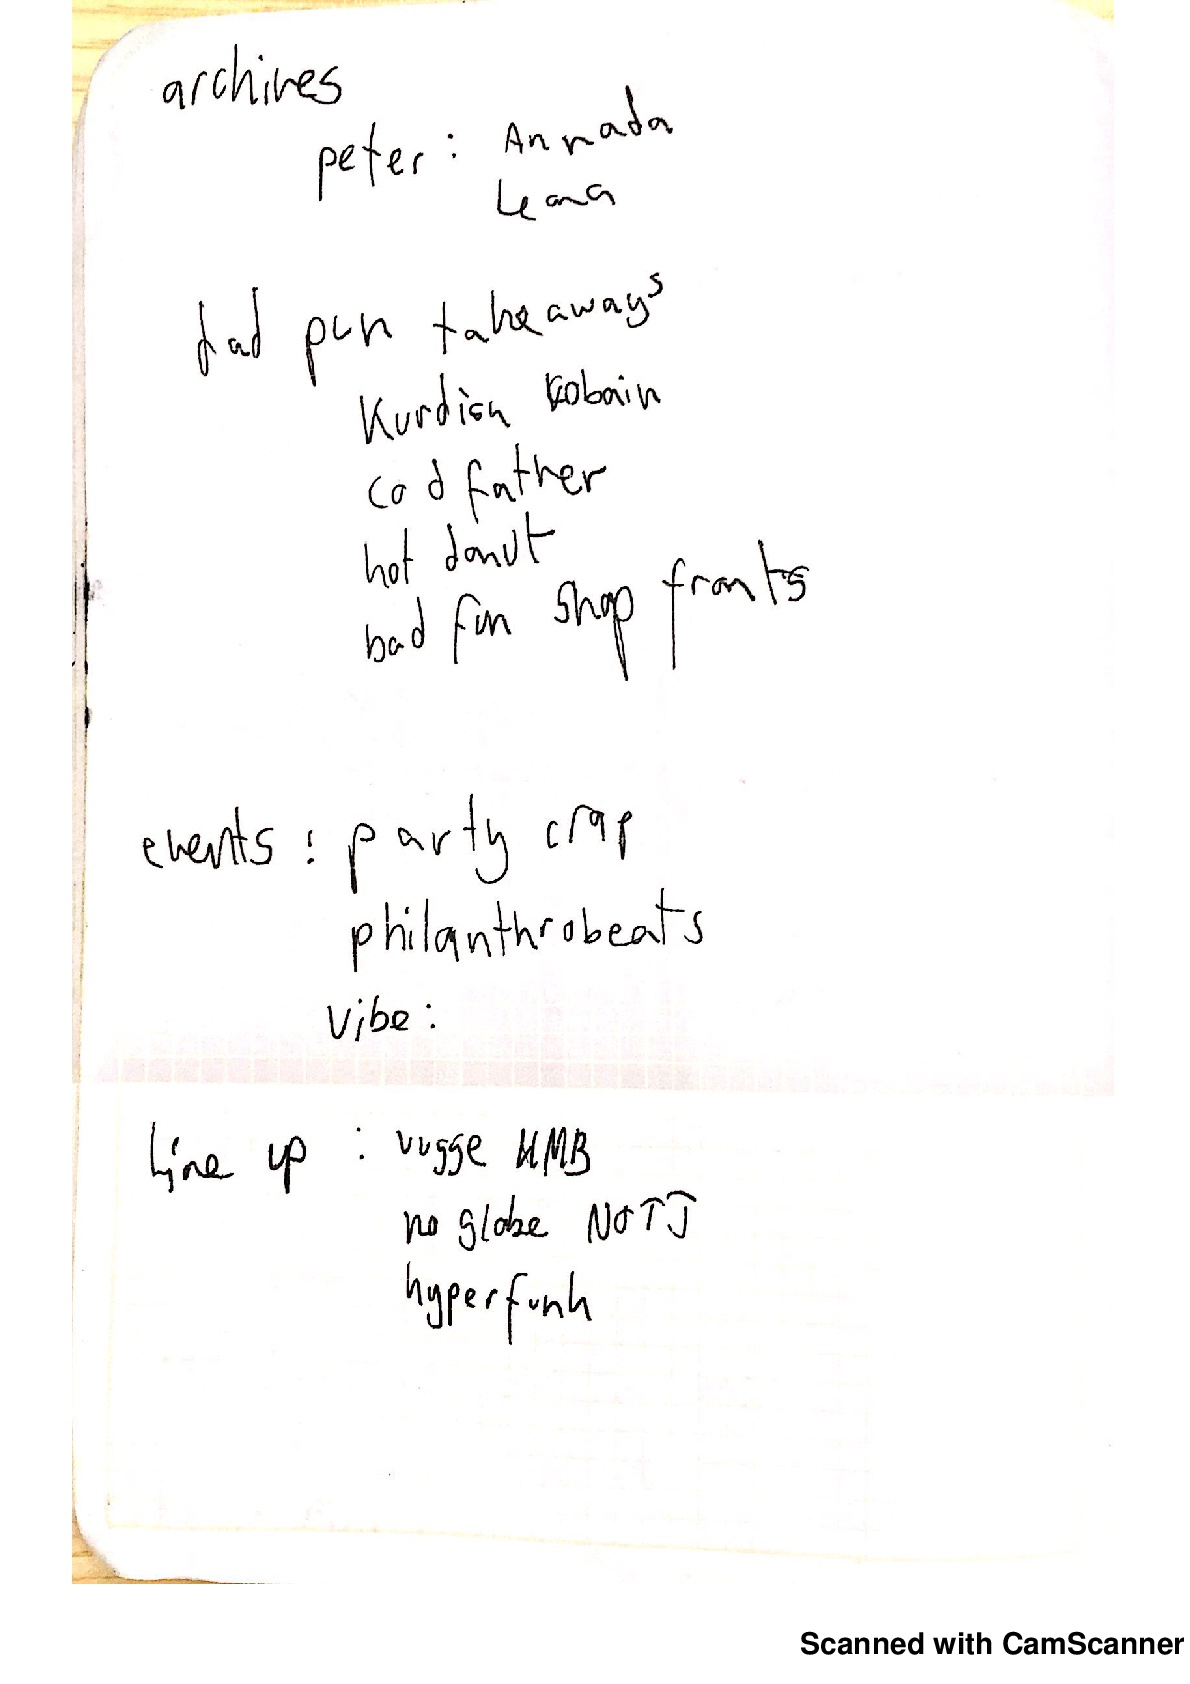 archives
peter: Annada
Leana
dad pun takeaways
Kurdish Kobain
cod father
hot donut
bad fun shop fronts
events: party crap
philanthrobeats
vibe:
line up: vugge HMB
no globe NOTJ
hyperfunk
Scanned with CamScanner